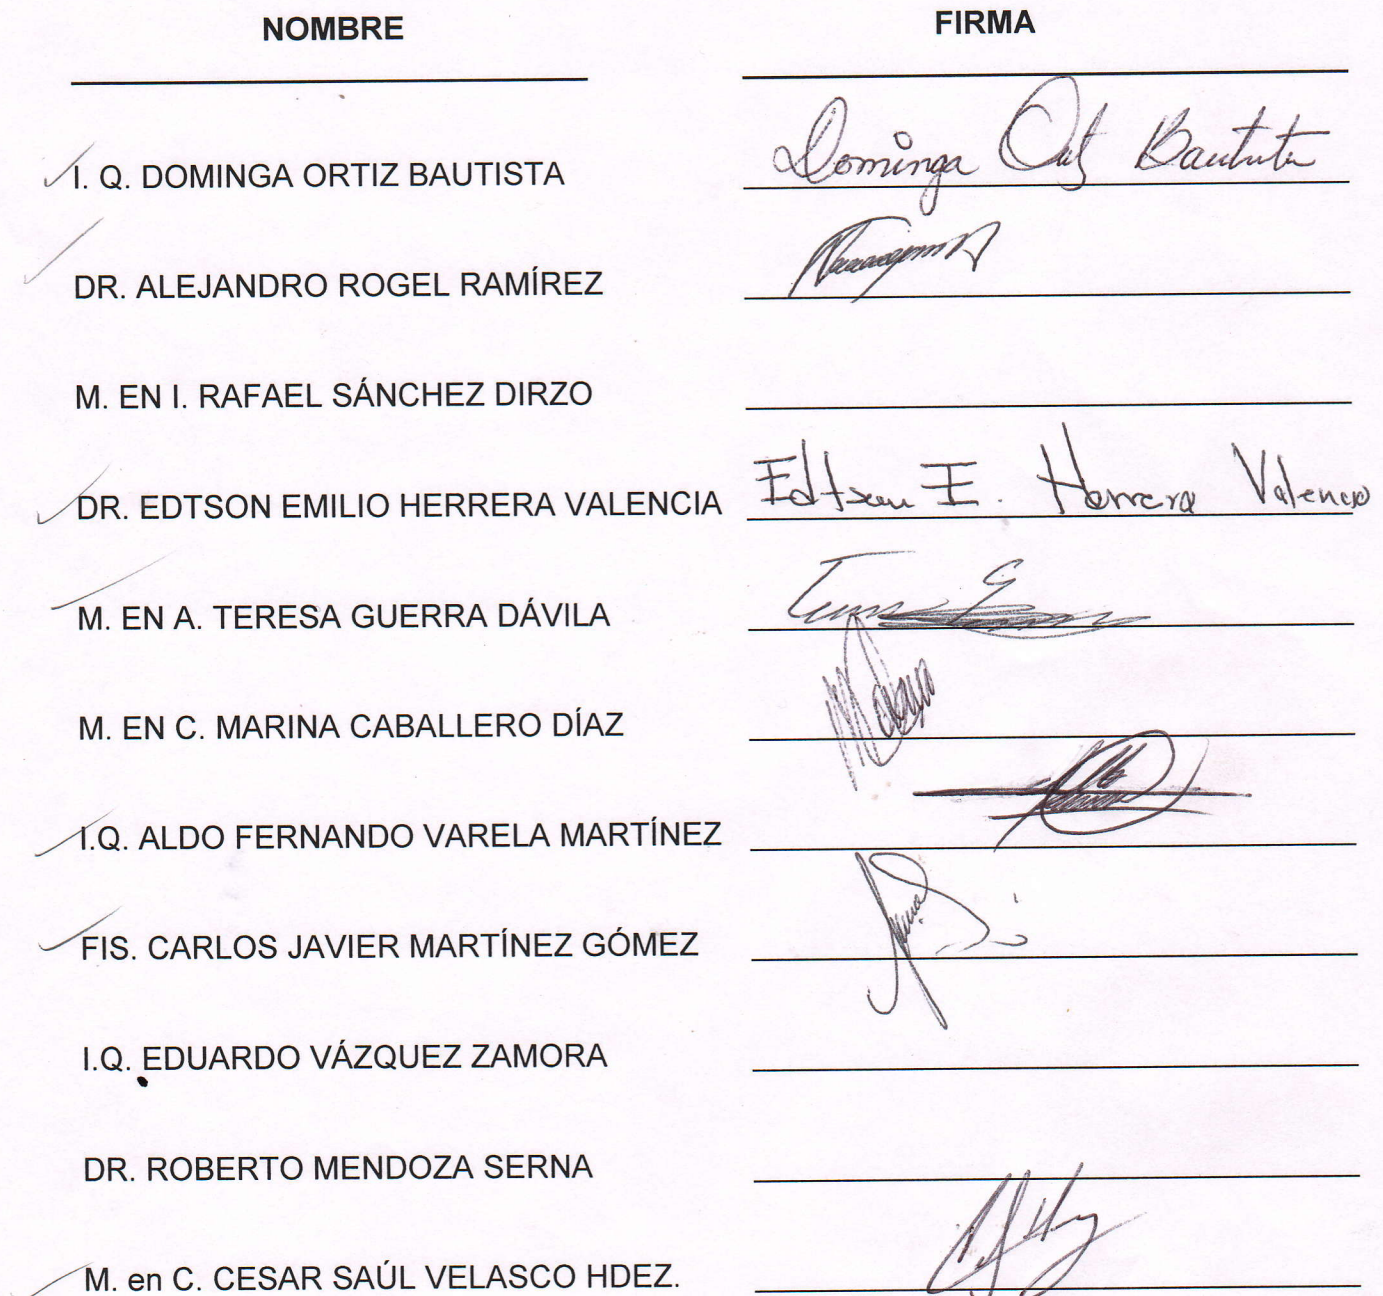 NOMBRE FIRMA
I. Q. DOMINGA ORTIZ BAUTISTA Dominga Ortiz Bautista
DR. ALEJANDRO ROGEL RAMÍREZ
M. EN I. RAFAEL SÁNCHEZ DIRZO
DR. EDTSON EMILIO HERRERA VALENCIA Edtson E. Herrera Valencia
M. EN A. TERESA GUERRA DÁVILA
M. EN C. MARINA CABALLERO DÍAZ
I.Q. ALDO FERNANDO VARELA MARTÍNEZ
FIS. CARLOS JAVIER MARTÍNEZ GÓMEZ
I.Q. EDUARDO VÁZQUEZ ZAMORA
DR. ROBERTO MENDOZA SERNA
M. en C. CESAR SAÚL VELASCO HDEZ.